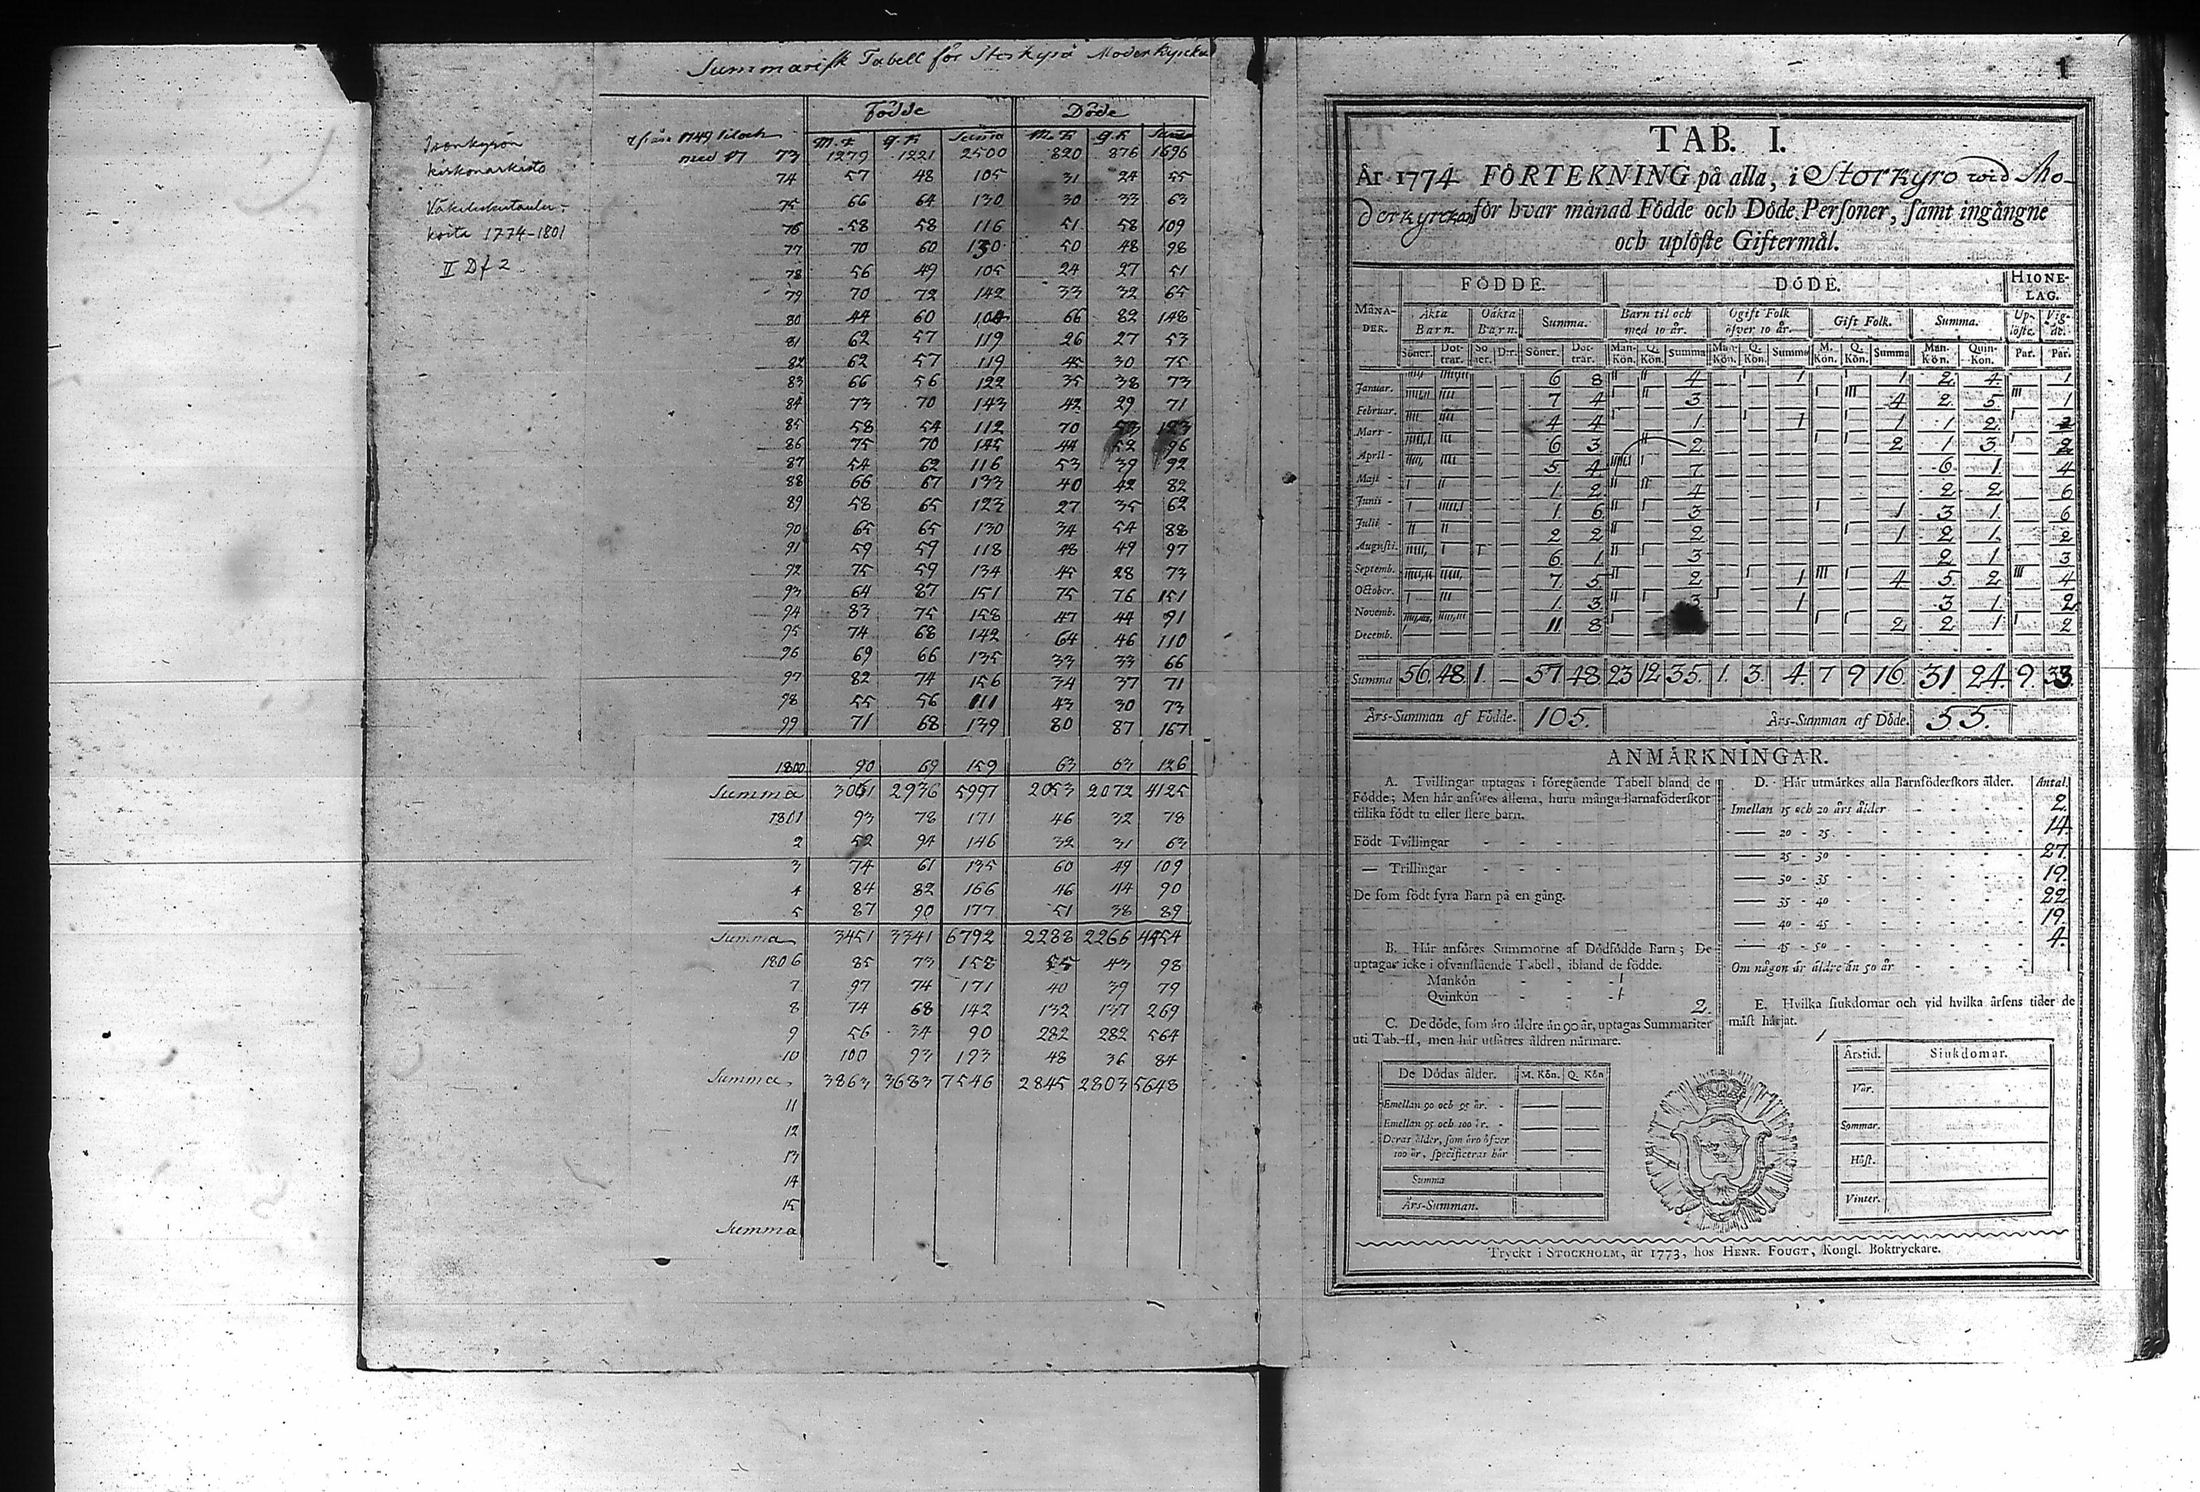 Isonkyrön
kirkonarkisto
Väkilukutaulu-
koita 1774-1801
II Df 2
Summarisk Tabell för Storkyro Moderkyrcka
Födde Döde
ifrån 1749 til och M.K Q.K Suma M.K Q.K Suma
med 17 73 1279 1221 2500 820 876 1696
74 57 48 105 31 24 55
75 66 64 130 30 33 63
76 58 58 116 51 58 109
77 70 60 130 50 48 98
78 56 49 105 24 27 51
79 70 72 142 33 32 65
80 44 60 104 66 82 148
81 62 57 119 26 27 53
82 62 57 119 45 30 75
83 66 56 122 35 38 73
84 73 70 143 42 29 71
85 58 54 112 70 53 123
86 75 70 145 44 52 96
87 54 62 116 53 39 92
88 66 67 133 40 42 82
89 58 65 123 27 35 62
90 65 65 130 34 54 88
91 59 59 118 48 49 97
92 75 59 134 45 28 73
93 64 87 151 75 76 151
94 83 75 158 47 44 91
95 74 68 142 64 46 110
96 69 66 135 33 33 66
97 82 74 156 34 37 71
98 55 56 111 43 30 73
99 71 68 139 80 87 167
1800 90 69 159 63 63 126
Summa 3061 2936 5997 2053 2072 4125
1801 93 78 171 46 32 78
2 52 94 146 32 31 63
3 74 61 135 60 49 109
4 84 82 166 46 44 90
5 87 90 177 51 38 89
Summa 3451 3341 6792 2288 2266 4454
1806 85 73 158 55 43 98
7 97 74 171 40 39 79
8 74 68 142 132 137 269
9 56 34 90 282 282 564
10 100 93 193 48 36 84
Summa 3863 3683 7546 2845 2803 5648
11
12
13
14
15
Summa
1
TAB. I.
År 1774 FÖRTEKNING på alla, i Storkyro wid Mo-
derkyrckan för hvar månad Födde och Döde Personer, samt ingångne
och uplöste Giftermål.
FÖDDE. DÖDE. HIONE-LAG.
MÅNA-DER. Äkta Barn. Oäkta Barn. Summa. Barn til och med 10 år. Ogift Folk öfver 10 år. Gift Folk. Summa. Up-löste. Vig-de.
Söner. Dot-trar. So-ner. D:r. Söner. Dot-trar. Man-Kön. Q. Kön. Summa Man-Kön. Q. Kön. Summa M. Kön. Q. Kön. Summa Man-Kön. Quin-Kon. Par. Par.
Januar. 6 8 4 1 1 2 4 1
Februar. 7 4 3 4 2 5 1
Mars 4 4 1 1 1 1 2 2
April 6 3 2 2 1 3 2
Maji 5 4 7 6 1 4
Junii 1 2 4 2 2 6
Julii 1 6 3 1 3 1 6
Augusti. 2 2 2 1 2 1 2
Septemb. 6 1 3 2 1 3
October. 7 5 2 1 4 5 2 4
Novemb. 1 3 3 1 3 1 2
Decemb. 11 8 2 2 1 2
Summa 56. 48. 1. — 57 48 23 12 35. 1. 3. 4. 7 9 16. 31. 24. 9. 33.
Års-Summan af Födde. 105. Års-Summan af Döde. 55.
ANMÄRKNINGAR.
A. Tvillingar uptagas i föregående Tabell bland de
Födde; Men här anföres allena, huru många Barnaföderskor
tillika födt tu eller flere barn.
Födt Tvillingar
— Trillingar
De som födt fyra Barn på en gång.
B. Här anföres Summorne af Dödfödde Barn; De
uptagas icke i ofvanstående Tabell, ibland de födde.
Mankön 1
Qvinkön 1
2.
C. De döde, som äro äldre än 90 år, uptagas Summariter
uti Tab. II, men här utsättes åldren närmare.
De Dödas ålder. M. Kön. Q. Kön
Emellan 90 och 95 år.
Emellan 95 och 100 år.
Deras ålder, som äro öfver
100 år, specificeras här
Summa
Års-Summan.
D. Här utmärkes alla Barnföderskors ålder. Antal.
Imellan 15 och 20 års ålder 2.
— 20 - 25 14
— 25 - 30 27.
— 30 - 35 19.
— 35 - 40 22
— 40 - 45 19.
— 45 - 50 4.
Om någon är äldre än 50 år
E. Hvilka siukdomar och vid hvilka årsens tider de
mäst härjat.
Årstid. Siukdomar.
Vår.
Sommar.
Höst.
Vinter.
Tryckt i STOCKHOLM, år 1773, hos HENR. FOUGT, Kongl. Boktryckare.